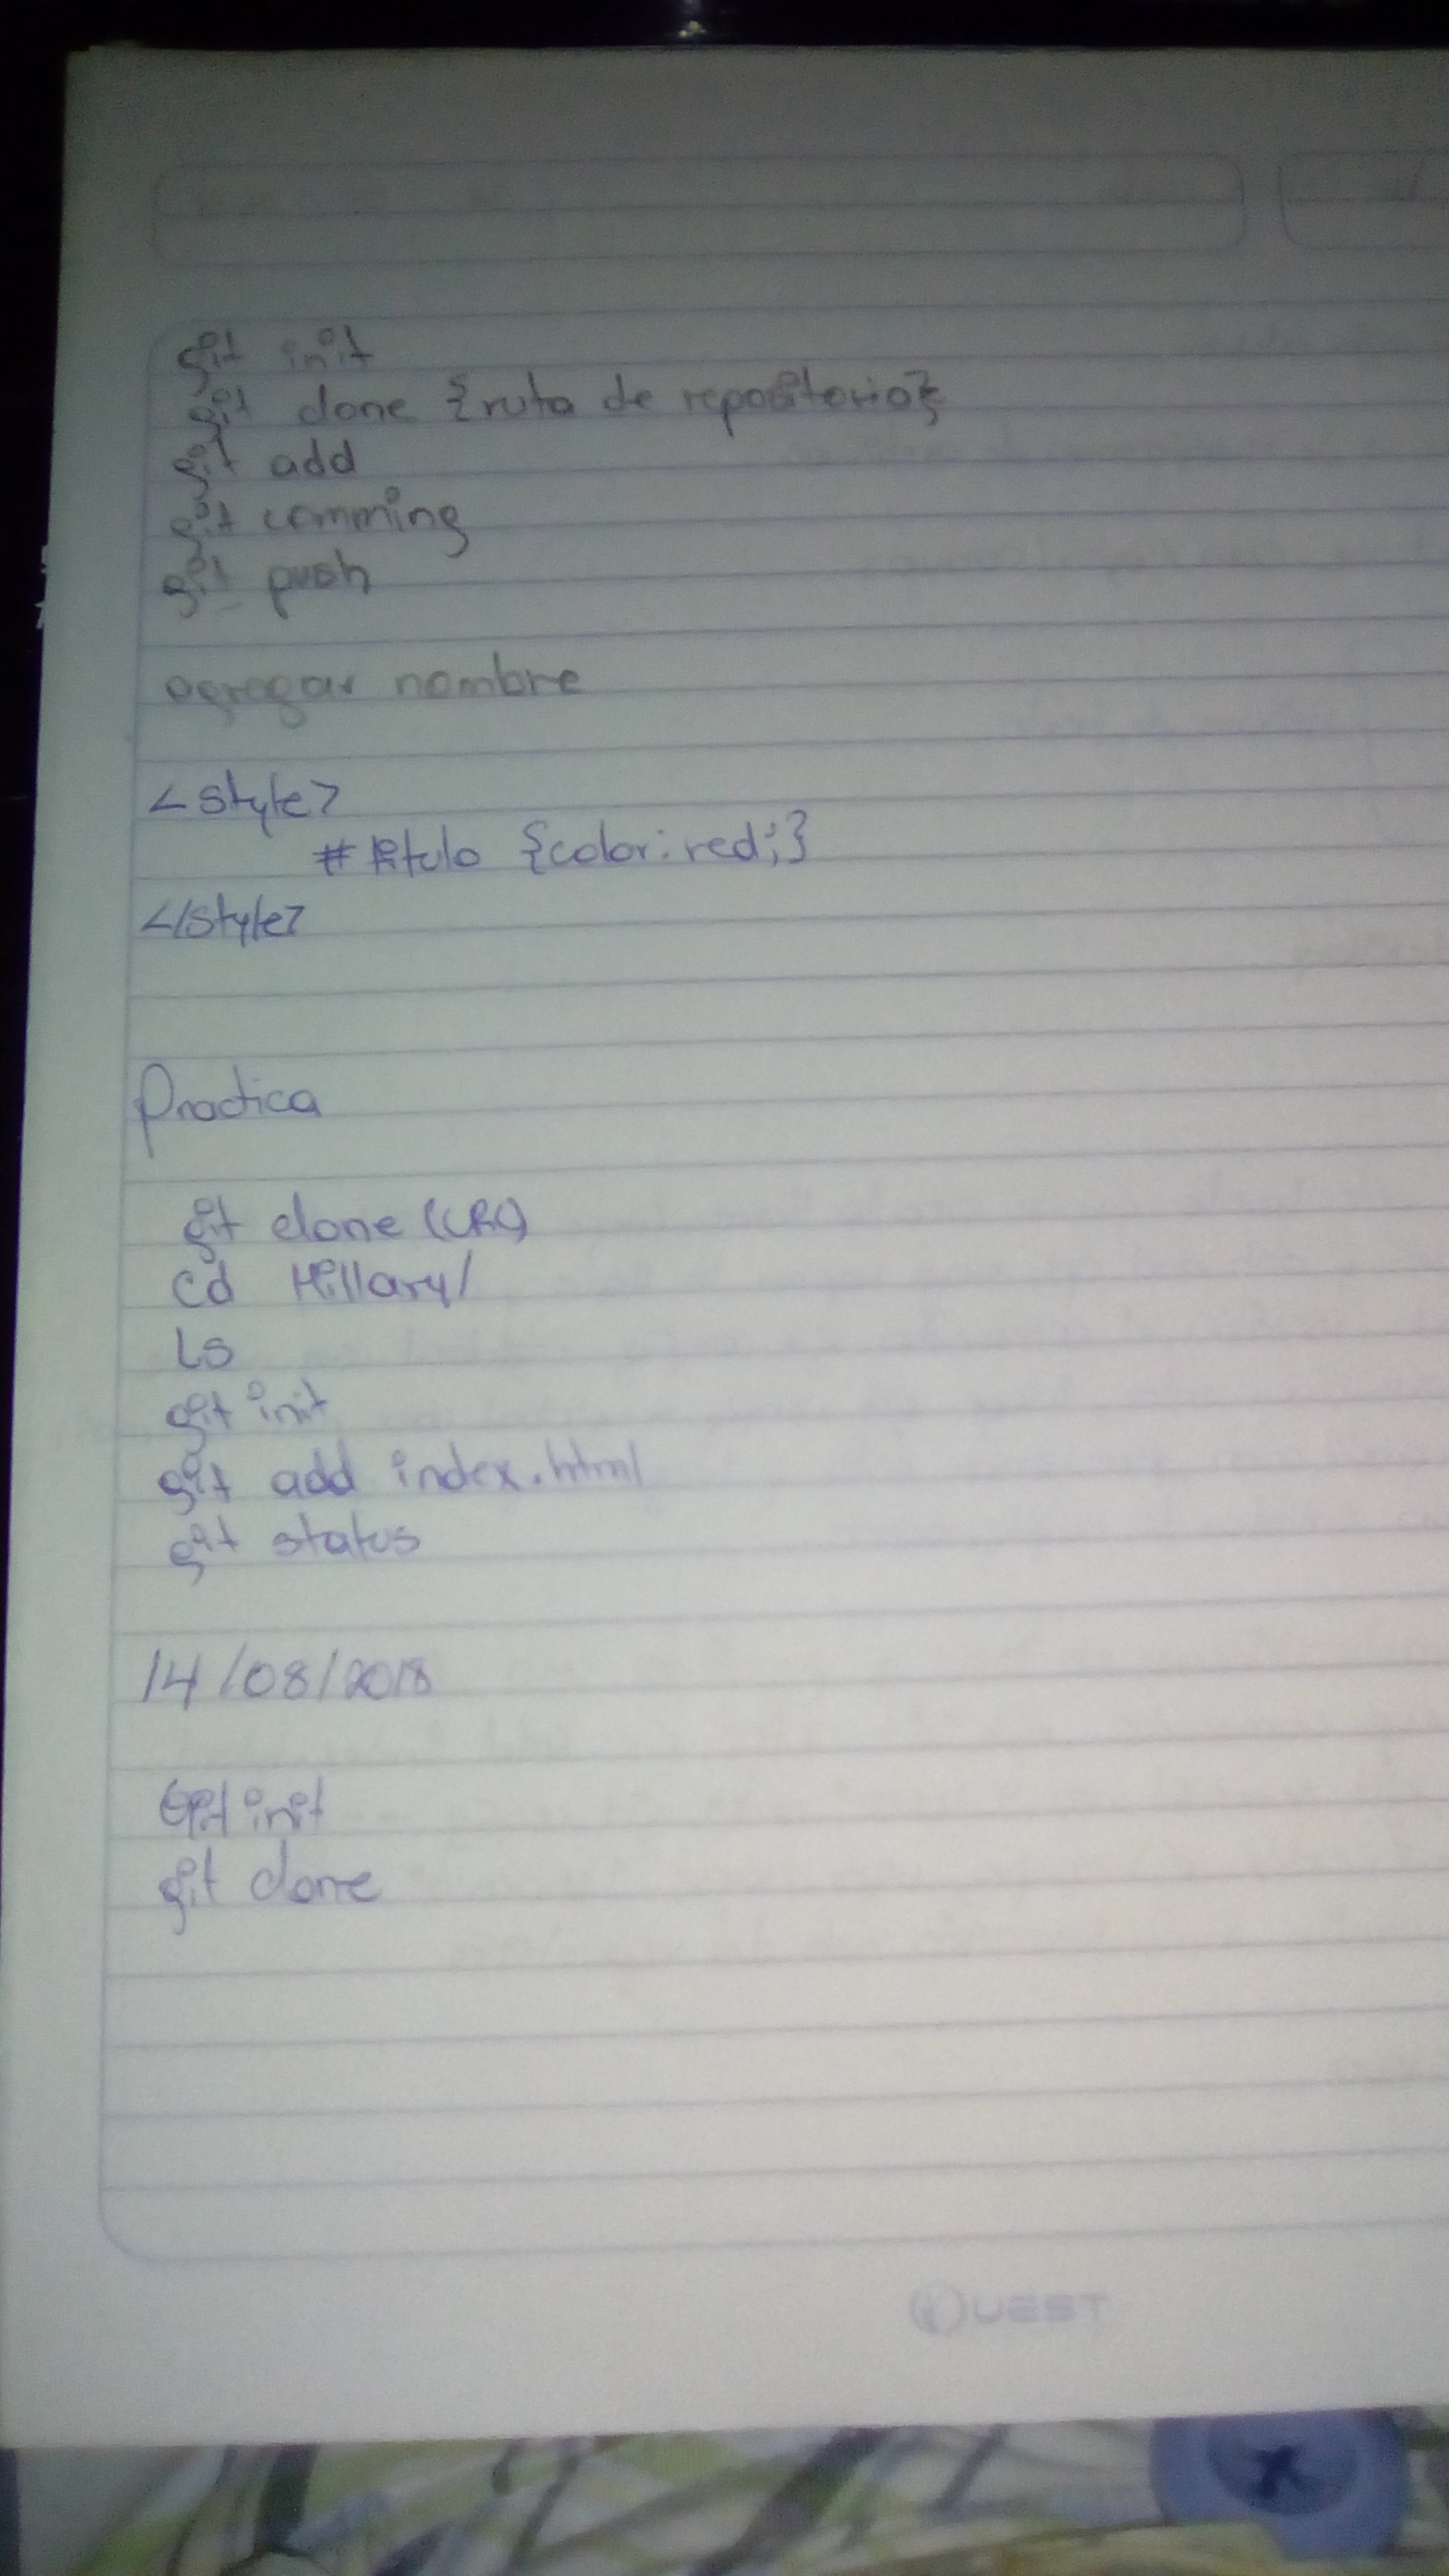 git init
git clone {ruta de repositorio}
git add
git comming
git push
agregar nombre
<style>
# titulo {color: red;}
</style>
Practica
git clone (URL)
cd Hillary/
Ls
git init
git add index.html
git status
14/08/2018
Git init
git clone
QUEST